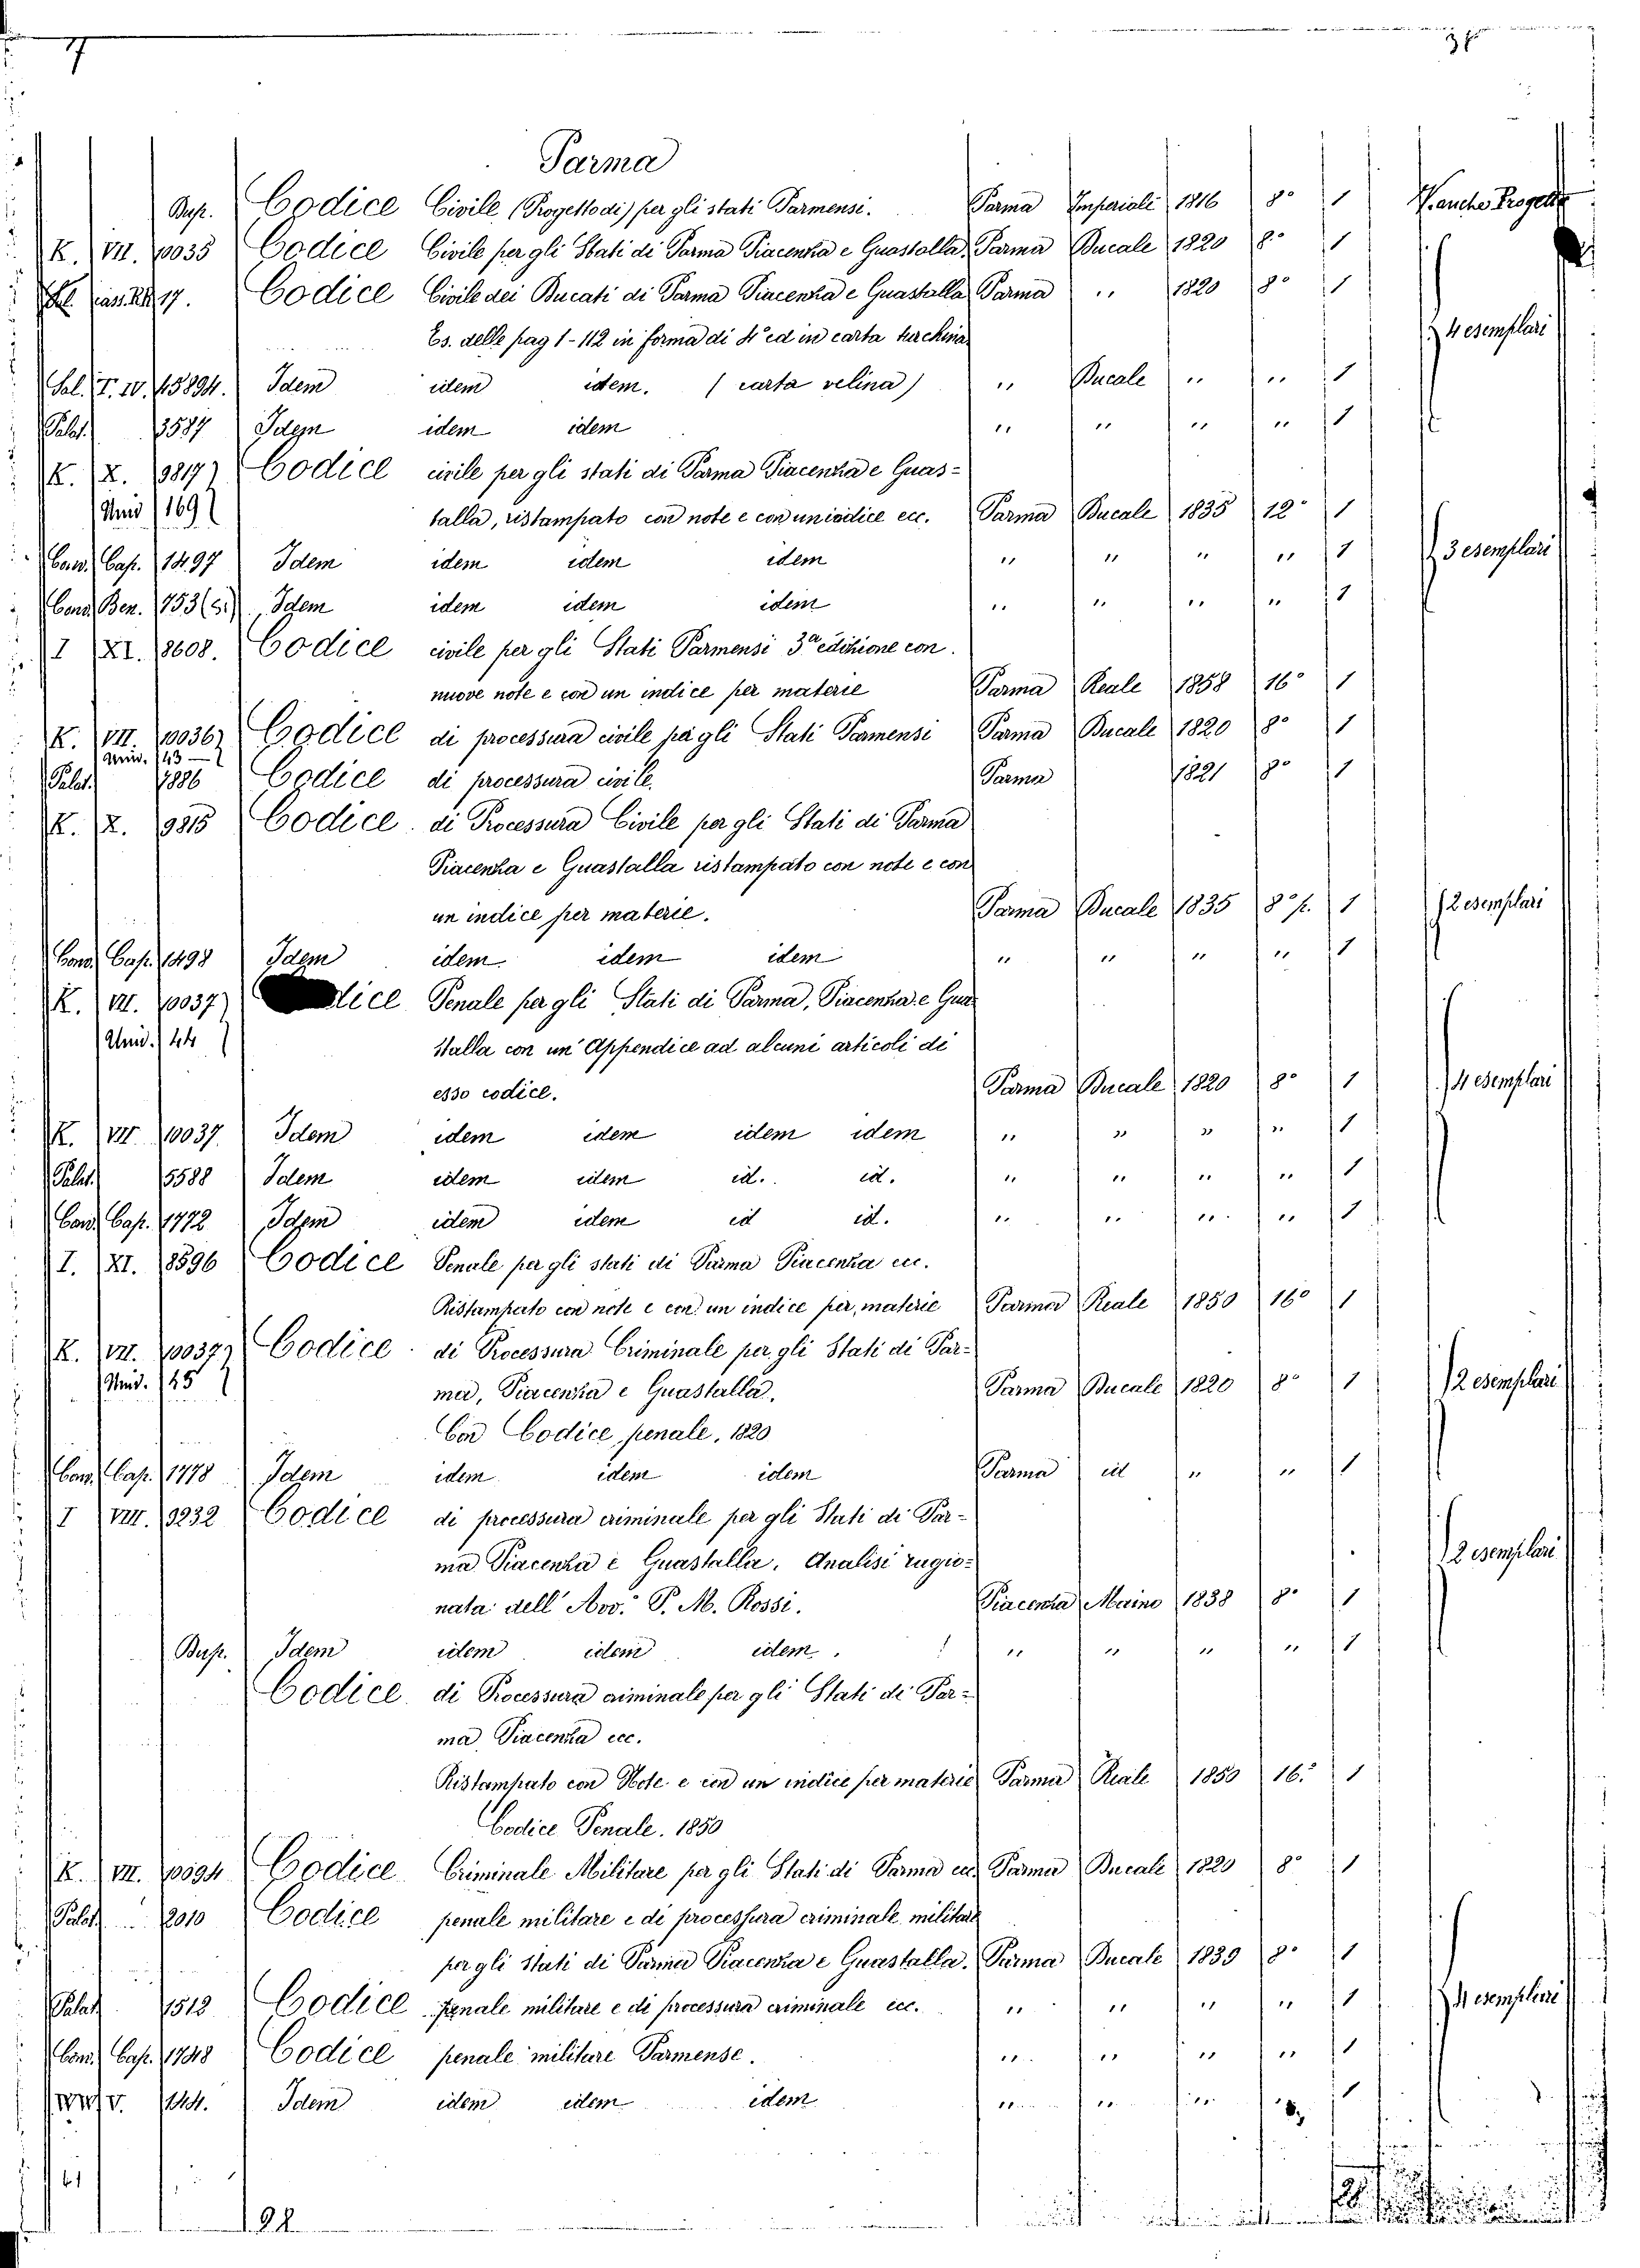 Parma
Busp. Codice Civile (Progetto di) per gli stati Parmensi. Parma Imperiale 1816 8º 1
K. VII. 10035 Codice Civile per gli Stati di Parma Piacenza e Guastalla. Parma Ducale 1820 8º 1
17. Codice Civile dei Ducati di Parma Piacenza e Guastalla Parma " 1820 8º 1
Es. delle pag 1-112 in forma di 4º ed in carta turchina
4 esemplari
Sal. T. IV. 15894. Idem idem idem. (carta velina) " Ducale " " 1
Palat. 3587 Idem idem idem " " " " 1
K. X. 9817 Codice civile per gli stati di Parma Piacenza e Guas=
Armid 169 talla, ristampato con note e con un indice ecc. Parma Ducale 1835 12º 1
Cons. Cap. 1497 Idem idem idem idem " " " " 1 3 esemplari
Cons. Ben. 753 Idem idem idem idem " " " " 1
I XI. 8608. Codice civile per gli Stati Parmensi 3ª edizione con
nuove note e con un indice per materie Parma Reale 1858 16º 1
K. VII. 10036 Codice di processura civile per gli Stati Parmensi Parma Ducale 1820 8º 1
43
Palat. 7886 Codice di processura civile. Parma 1821 8º 1
K. X. 9815 Codice di Processura Civile per gli Stati di Parma
Piacenza e Guastalla ristampato con note e con
un indice per materie. Parma Ducale 1835 8º p. 1 2 esemplari
Cons. Cap. 1498 Idem idem idem idem " " " " 1
K. VII. 10037 dice Penale per gli Stati di Parma, Piacenza e Gua
44 stalla con un' Appendice ad alcuni articoli di
esso codice. Parma Ducale 1820 8º 1 4 esemplari
K. VII 10037. Idem idem idem idem idem " " " " 1
Palat. 5588 Idem idem idem id. id. " " " " 1
Cons. Cap. 1772 Idem idem idem id id. " " " " 1
I. XI. 8596 Codice Penale per gli stati di Parma Piacenza ecc.
Ristampato con note e con un indice per materie Parma Reale 1850 16º 1
K. VII. 10037 Codice di Processura Criminale per gli Stati di Par=
45 ma, Piacenza e Guastalla. Parma Ducale 1820 8º 1 2 esemplari
Con Codice penale, 1820
Cons. Cap. 1778 Idem idem idem idem Parma id " " 1
I VIII. 9232 Codice di processura criminale per gli Stati di Par=
ma Piacenza e Guastalla. Analisi ragio= 2 esemplari
nata dell' Avv. P. M. Rossi. Piacenza Maino 1838 8º 1
Busp. Idem idem idem idem. " " " " 1
Codice di Processura criminale per gli Stati di Par=
ma Piacenza ecc.
Ristampato con Note e con un indice per materie Parma Reale 1850 16º 1
Codice Penale. 1850
K. VII. 10094 Codice Criminale Militare per gli Stati di Parma ecc Parma Ducale 1820 8º 1
Palat. 2010 Codice penale militare e di processura criminale militare
per gli stati di Parma Piacenza e Guastalla. Parma Ducale 1839 8º 1
Palat. 1512 Codice penale militare e di processura criminale ecc. " " " " 1 4 esemplari
Cons. Cap. 1748 Codice penale militare Parmense. " " " " 1
V. 144. Idem idem idem idem " " " " 1